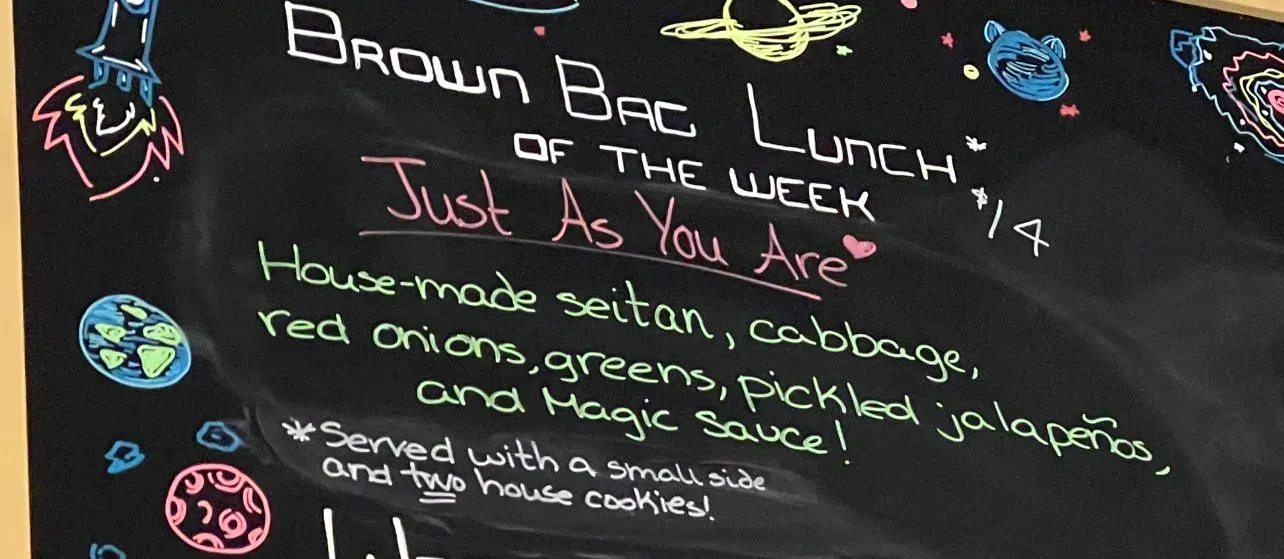 BROWN BAG LUNCH*
OF THE WEEK $14
Just As You Are
House-made seitan, cabbage,
red onions, greens, pickled jalapeños,
and Magic Sauce!
*Served with a small side
and two house cookies!